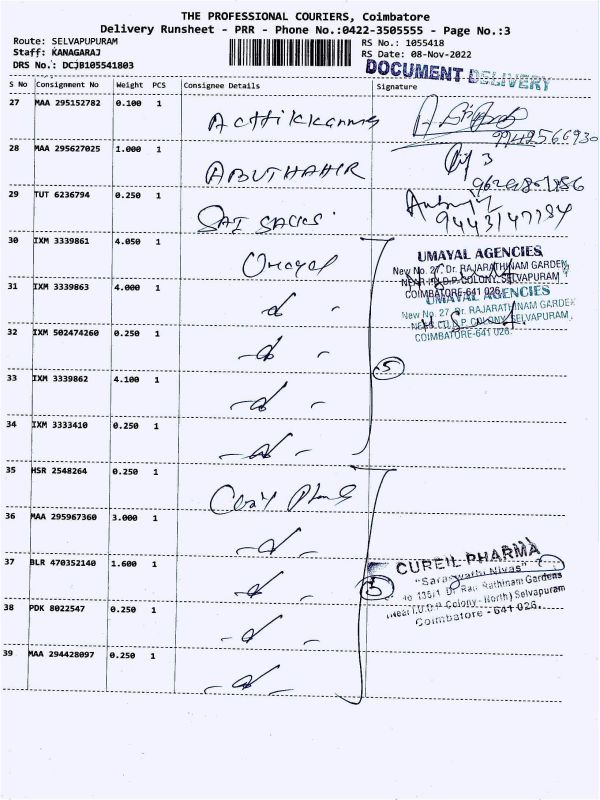 THE PROFESSIONAL COURIERS, Coimbatore
Delivery Runsheet - PRR - Phone No.:0422-3505555 - Page No.:3
Route: SELVAPUPURAM
Staff: KANAGARAJ
DRS No.: DCJB105541803
RS No.: 1055418
RS Date: 08-Nov-2022
DOCUMENT DELIVERY
S No Consignment No Weight PCS Consignee Details Signature
27 MAA 295152782 0.100 1
28 MAA 295627025 1.000 1 ABUTHAHIR
29 TUT 6236794 0.250 1 SAI SACKS
30 IXM 3339861 4.050 1 Umayal
UMAYAL AGENCIES
New No. 27, Dr. RAJARATHINAM GARDEN,
NEAR I.U.D.P. COLONY, SELVAPURAM
COIMBATORE-641 026.
31 IXM 3339863 4.000 1
UMAYAL AGENCIES
New No. 27, Dr. RAJARATHINAM GARDEN
NEAR I.U.D.P. COLONY, SELVAPURAM,
COIMBATORE-641 026.
32 IXM 502474260 0.250 1
5
33 IXM 3339862 4.100 1
34 IXM 3333410 0.250 1
35 HSR 2548264 0.250 1
36 MAA 295967360 3.000 1
37 BLR 470352140 1.600 1
5
CUREIL PHARMA
"Saraswathi Nivas"
No 135/1 Dr Raja Rathinam Gardens
(Near I.U.D.P Colony - North) Selvapuram
Coimbatore - 641 026.
38 PDK 8022547 0.250 1
39 MAA 294428097 0.250 1